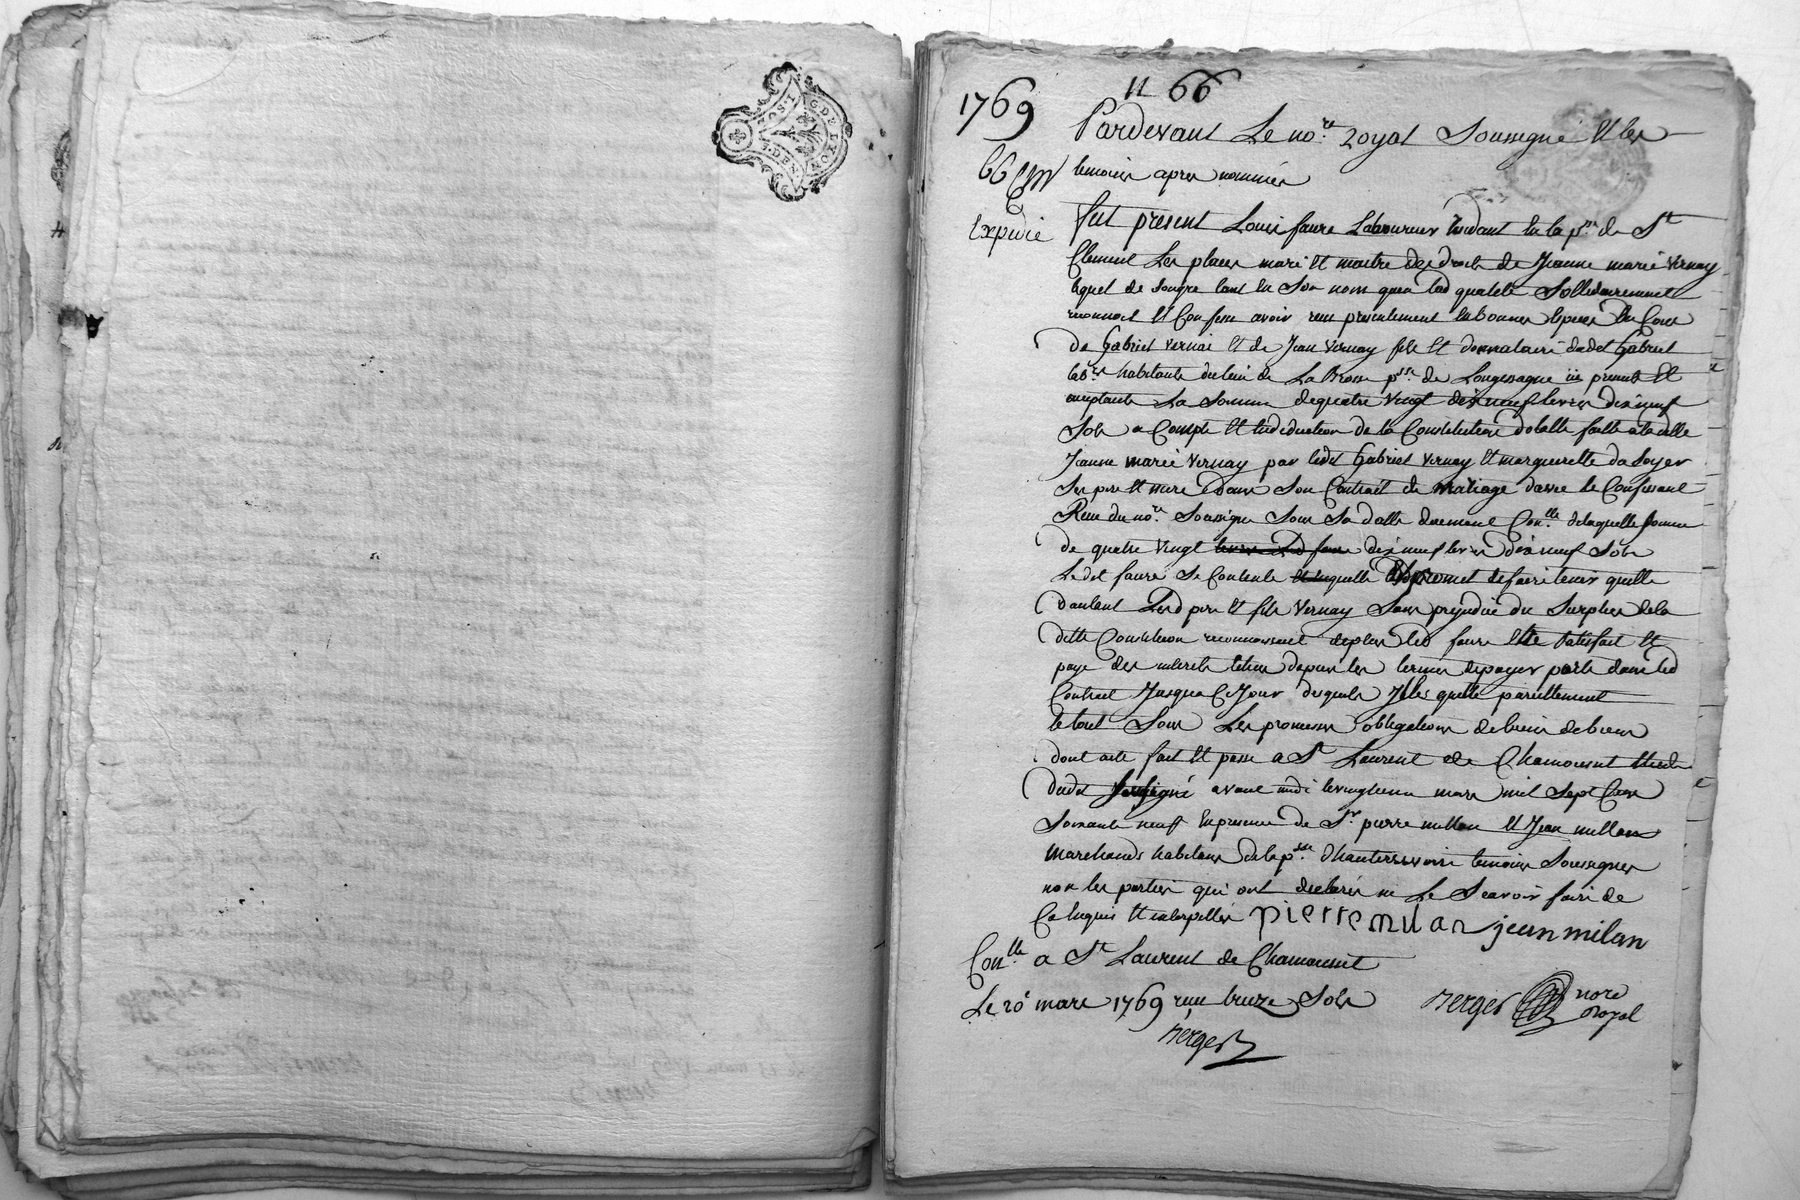 G. DE LYON
1769
n 66
Pardevant Le no.re Royal Soussigné Et les
66
temoins apres nommés
Expedié
fut present Louis faure Laboureur residant en la p.sse de St
Clement Les places mari Et maitre des droits de Jeanne marie vernay
Lequel de Son gre tant En Son nom quen lad qualité Sollidairement
reconnoit Et Confesse avoir recu presentement En bonnes Especes En Cours
de Gabriel vernai Et de Jean vernay fils Et donnataire dudit Gabriel
lab.rs habitants du lieu de La Brosse p.sse de Longessagne ici presents Et
acceptants La Somme de quatre vingt dix neuf livres dix neuf
Sols a Compte Et En deduction de la Constitution dotalle faitte a laditte
Jeanne marie vernay par ledit Gabriel vernay Et margueritte
Ses pere Et mere dans Son Contrait de mariage davec le Confessant
Recu du no.re Soussigné Sous Sa datte duement Con.lle de laquelle Somme
de quatre vingt dix neuf livres dix neuf Sols
Ledit faure Se Contente promet de faire tenir quitte
dautant Lesd pere Et fils vernay Sans prejudice du Surplus de la
ditte Constitution reconnoissant de plus led faure Etre Satisfait Et
payé des interets depuis les termes de payer porté dans led
Contrait Jusqua Ce Jour desquels Il les quitte pareillement
le tout Sous Les promesses obligations de biens
dont acte fait Et passé a St Laurent de Chamousset Etude
dudit Soussigné avant midi le vingt mars mil Sept Cent
Soixante neuf En presence de Sr pierre millan Et Jean millan
marchands habitans de la p.sse d'hauterivoire temoins Soussignes
non les parties qui ont declarés ne Le Scavoir faire de
Ce Enquis Et interpellés pierre milan jean milan
Con.lle a St Laurent de Chamousset
Le 20 mars 1769 recu treize Sols
verger nore
royal
verger